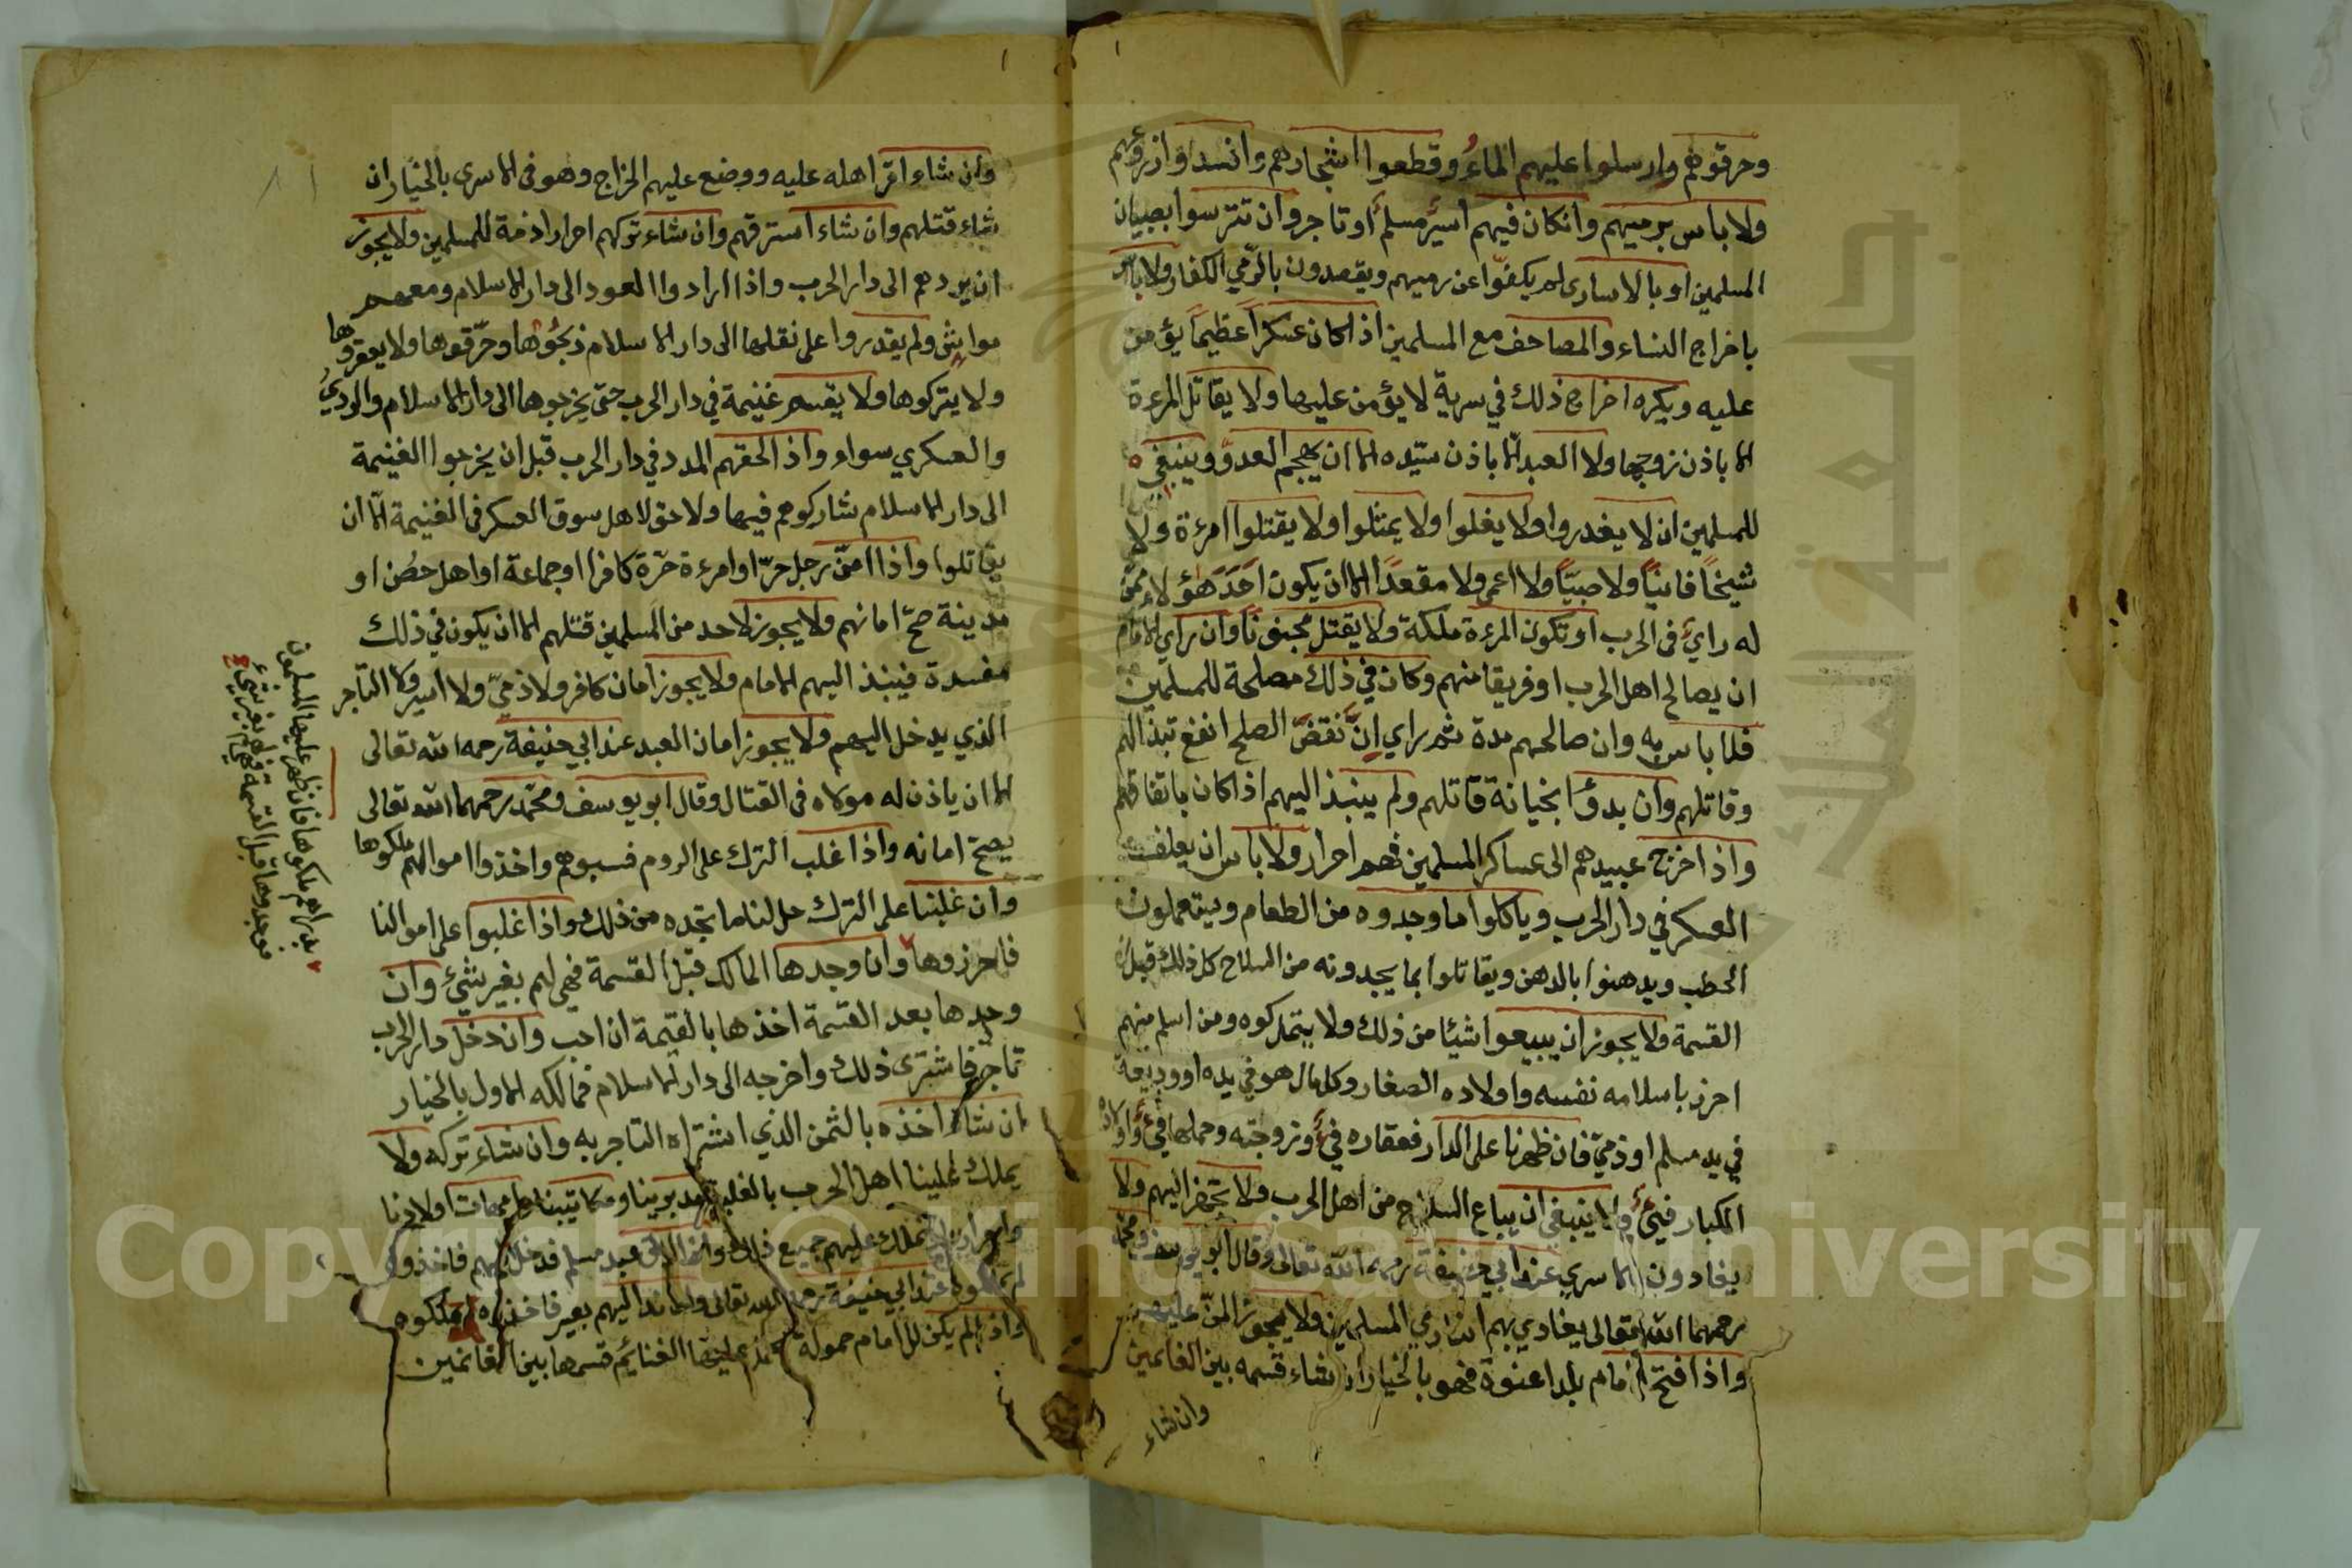 وحرقوهم وارسلوا عليهم الماء وقطعوا اشجارهم وانسدوا زروعهم
ولا باس برميهم وانكان فيهم اسير مسلم او تاجر وان تترسوا بصبيان
المسلمين او بالاسارى لم يكفوا عن رميهم ويقصدون بالرمي الكفار ولا باس
باخراج النساء والمصاحف مع المسلمين اذا كان عسكرا عظيما يؤمن
عليه ويكره اخراج ذلك في سرية لا يؤمن عليها ولا يقاتل المرءة
الا باذن زوجها ولا العبد الا باذن سيده الا ان يهجم العدو وينبغي
للمسلمين ان لا يغدروا ولا يغلوا ولا يمثلوا ولا يقتلوا امرءة ولا
شيخا فانيا ولا صبيا ولا اعمى ولا مقعدا الا ان يكون احد هؤلاء ممن
له راي في الحرب او تكون المرءة ملكة ولا يقتل مجنونا وان راي الامام
ان يصالح اهل الحرب او فريقا منهم وكان في ذلك مصلحة للمسلمين
فلا باس به وان صالحهم مدة ثم راي ان نقض الصلح انفع نبذ اليهم
وقاتلهم وان بدؤا بخيانة قاتلهم ولم ينبذ اليهم اذا كان باتفاقهم
واذا خرج عبيدهم الى عساكر المسلمين فهم احرار ولا باس ان يعلف
العسكر في دار الحرب وياكلوا ما وجدوه من الطعام ويستعملون
الحطب ويدهنوا بالدهن ويقاتلوا بما يجدونه من السلاح كل ذلك قبل
القسمة ولا يجوز ان يبيعوا شيئا من ذلك ولا يتملكوه ومن اسلم منهم
احرز باسلامه نفسه واولاده الصغار وكل مال هو في يده او وديعة
في يد مسلم او ذمي فان ظهرنا على الدار فعقاره فيء وزوجته وحملها فيء واولاده
الكبار فيء ولا ينبغي ان يباع السلاح من اهل الحرب ولا يجهز اليهم ولا
يفادون الاسرى عند ابي حنيفة رحمه الله تعالى وقال ابو يوسف ومحمد
رحمهما الله تعالى يفادي بهم اسارى المسلمين ولا يجوز المن عليهم
واذا فتح الامام بلدا عنوة فهو بالخيار ان شاء قسمه بين الغانمين
وان شاء
وان شاء اقر اهله عليه ووضع عليهم الخراج وهو في الاسرى بالخيار ان
شاء قتلهم وان شاء استرقهم وان شاء تركهم احرارا ذمة للمسلمين ولا يجوز
ان يردهم الى دار الحرب واذا ارادوا العود الى دار الاسلام ومعهم
مواشي ولم يقدروا على نقلها الى دار الاسلام ذبحوها وحرقوها ولا يعقروها
ولا يتركوها ولا يقسم غنيمة في دار الحرب حتى يخرجوها الى دار الاسلام والردي
والعسكري سواء واذا لحقهم المدد في دار الحرب قبل ان يخرجوا الغنيمة
الى دار الاسلام شاركوهم فيها ولا حق لاهل سوق العسكر في الغنيمة الا ان
يقاتلوا واذا امن رجل حر او امرءة حرة كافرا او جماعة او اهل حصن او
مدينة صح امانهم ولا يجوز لاحد من المسلمين قتلهم الا ان يكون في ذلك
مفسدة فينبذ اليهم الامام ولا يجوز امان كافر ولا ذمي ولا اسير ولا التاجر
الذي يدخل اليهم ولا يجوز امان العبد عند ابي حنيفة رحمه الله تعالى
الا ان ياذن له مولاه في القتال وقال ابو يوسف ومحمد رحمهما الله تعالى
يصح امانه واذا غلب الترك على الروم فسبوهم واخذوا اموالهم ملكوها
وان غلبنا على الترك حل لنا ما نجده من ذلك واذا غلبوا على اموالنا
فاحرزوها وان وجدها المالك قبل القسمة فهي لهم بغير شيء وان
وجدها بعد القسمة اخذها بالقيمة ان احب وان دخل دار الحرب
تاجر فاشترى ذلك واخرجه الى دار الاسلام فمالكه الاول بالخيار
ان شاء اخذه بالثمن الذي اشتراه التاجر به وان شاء تركه ولا
يملك علينا اهل الحرب بالغلبة مدبرينا ومكاتبينا وامهات اولادنا
واحرارنا ونملك عليهم جميع ذلك واذا ابق عبد مسلم فدخل اليهم فاخذوه
لم يملكوه عند ابي حنيفة رحمه الله تعالى وان ند اليهم بعير فاخذوه ملكوه
واذا لم يكن للامام حمولة يحمل عليها الغنائم قسمها بين الغانمين
بدارهم ملكوها فان ظهر عليها المسلمون
فوجدوها قبل القسمة فهي لهم بغير شيء
Copyright © King Saud University